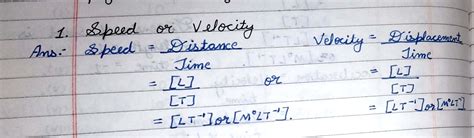 1. Speed or Velocity
Ans:- Speed = Distance / Time   Velocity = Displacement / Time
= [L] / [T]   or   = [L] / [T]
= [LT⁻¹] or [M⁰LT⁻¹].   = [LT⁻¹] or [M⁰LT⁻¹]